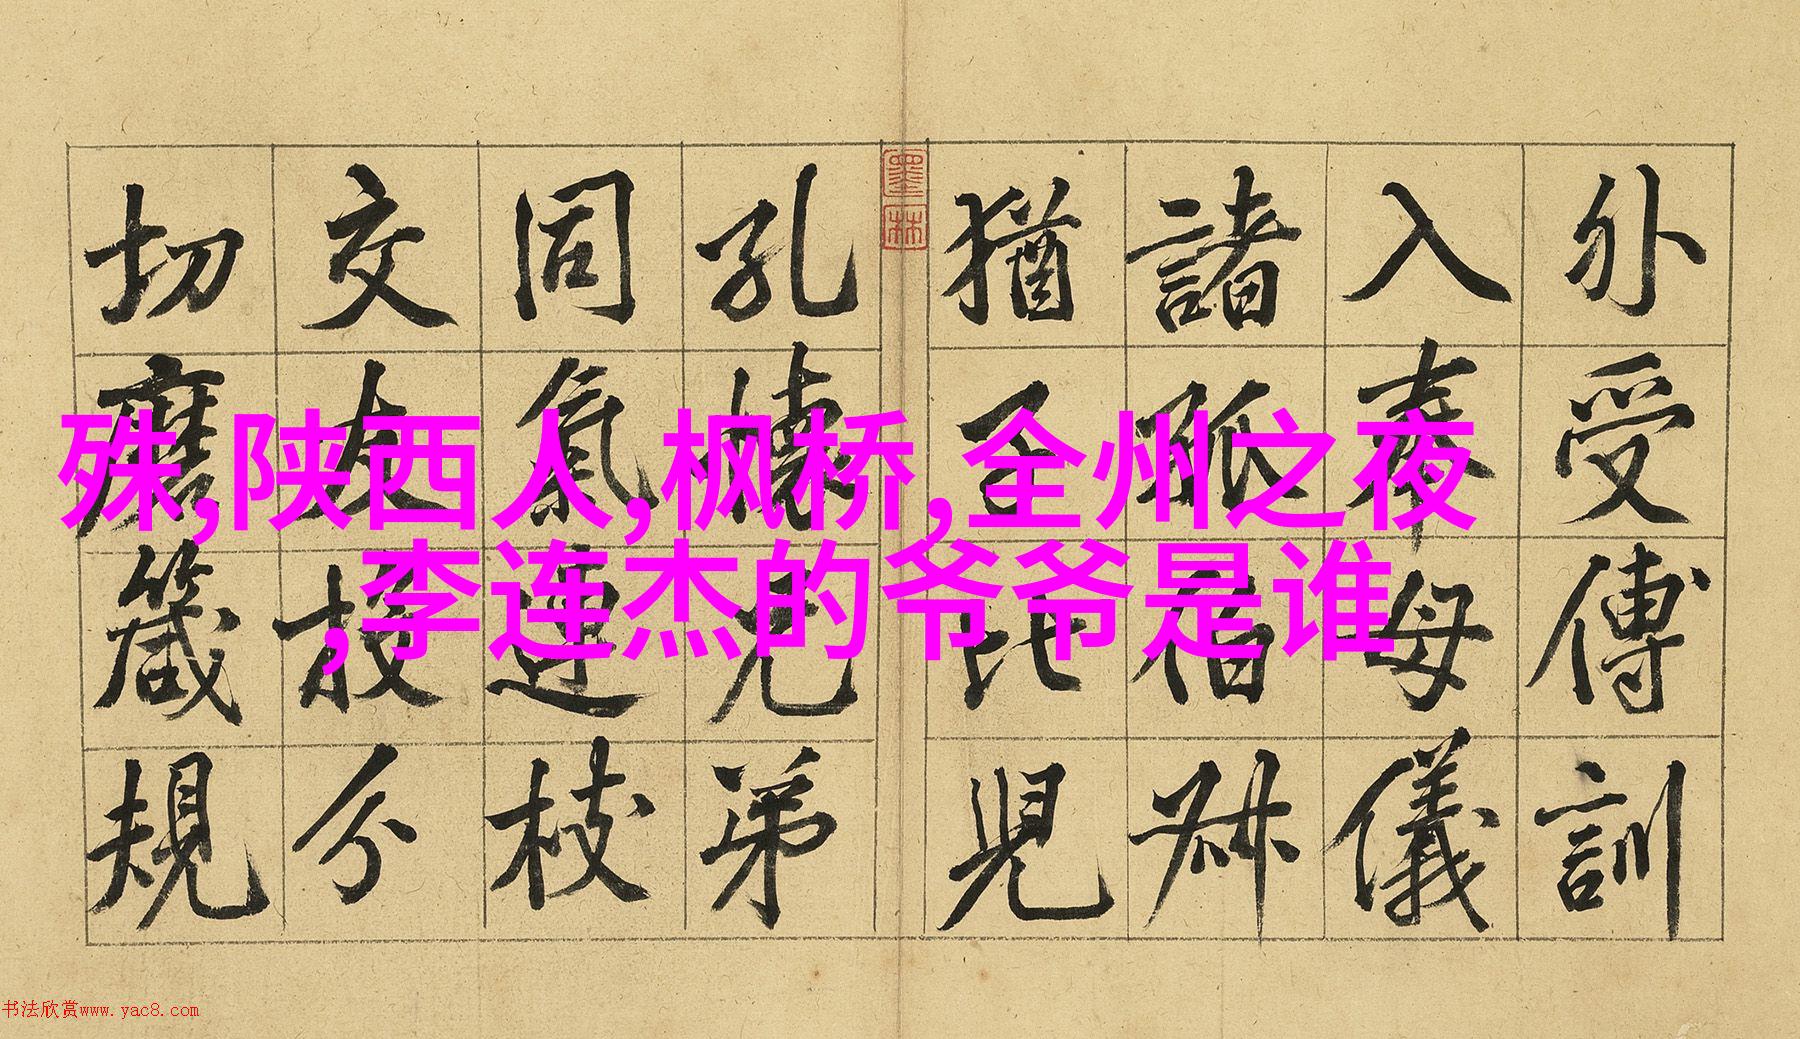 殊,陕西人,枫桥,全州之夜
,李连杰的爷爷是谁
外受傅訓
入奉母儀
諸姑伯叔
猶子比兒
孔懷兄弟
同氣連枝
交友投分
切磨箴規
墨林
书法欣赏www.yac8.com